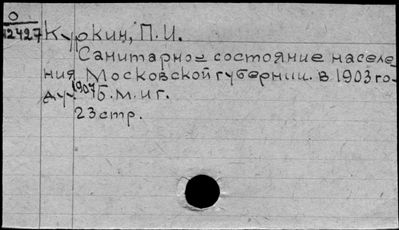 О
12427
Куркин, П.И.
Санитарное состояние населе
ния Московской губернии в 1903 го-
ду. 1907 Б.м.и г.
23 стр.